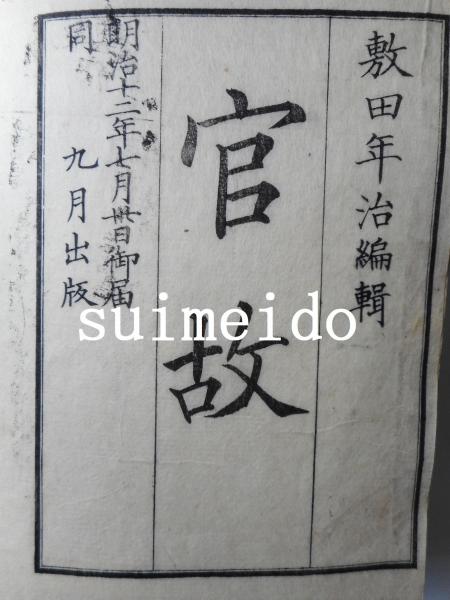 敷田年治編輯
官故
明治十二年七月卅日御届
同 九月出版
suimeido